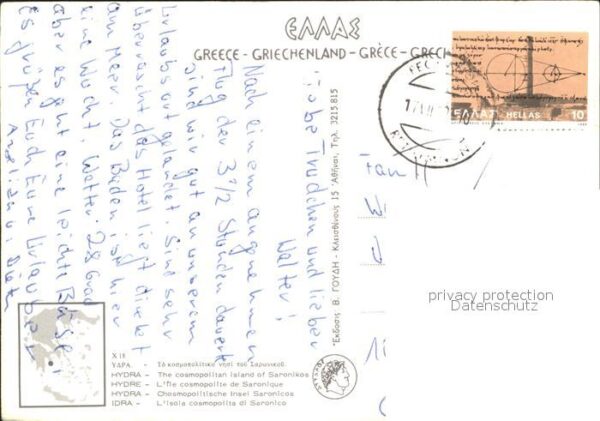 ΕΛΛΑΣ
GREECE - GRIECHENLAND - GRÈCE - GREC
ΕΛΛΑΣ HELLAS 10
Liebe Trudchen und lieber
Walter!
Nach einem angenehmen
Flug der 3 1/2 Stunden dauerte
sind wir gut an unserem
Urlaubsort gelandet. Sind sehr
überrascht das Hotel liegt direkt
am Meer. Das Baden ist hier
eine Wucht. Wetter 28 Grad
aber es geht eine leichte Brise,
Es grüßen Euch Eure Urlauber
Frau
Έκδοσις Β. ΓΟΥΔΗ - Κλεισθένους 15 Αθήναι, Τηλ. 3215.815
privacy protection
Datenschutz
Χ 18
ΥΔΡΑ - Τό κοσμοπολίτικο νησί του Σαρωνικού.
HYDRA - The cosmopolitan island of Saronikos
HYDRE - L'île cosmopolite de Saronique
HYDRA - Chosmopolitische Insel Saronicos
IDRA - L'isola cosmopolita di Saronico